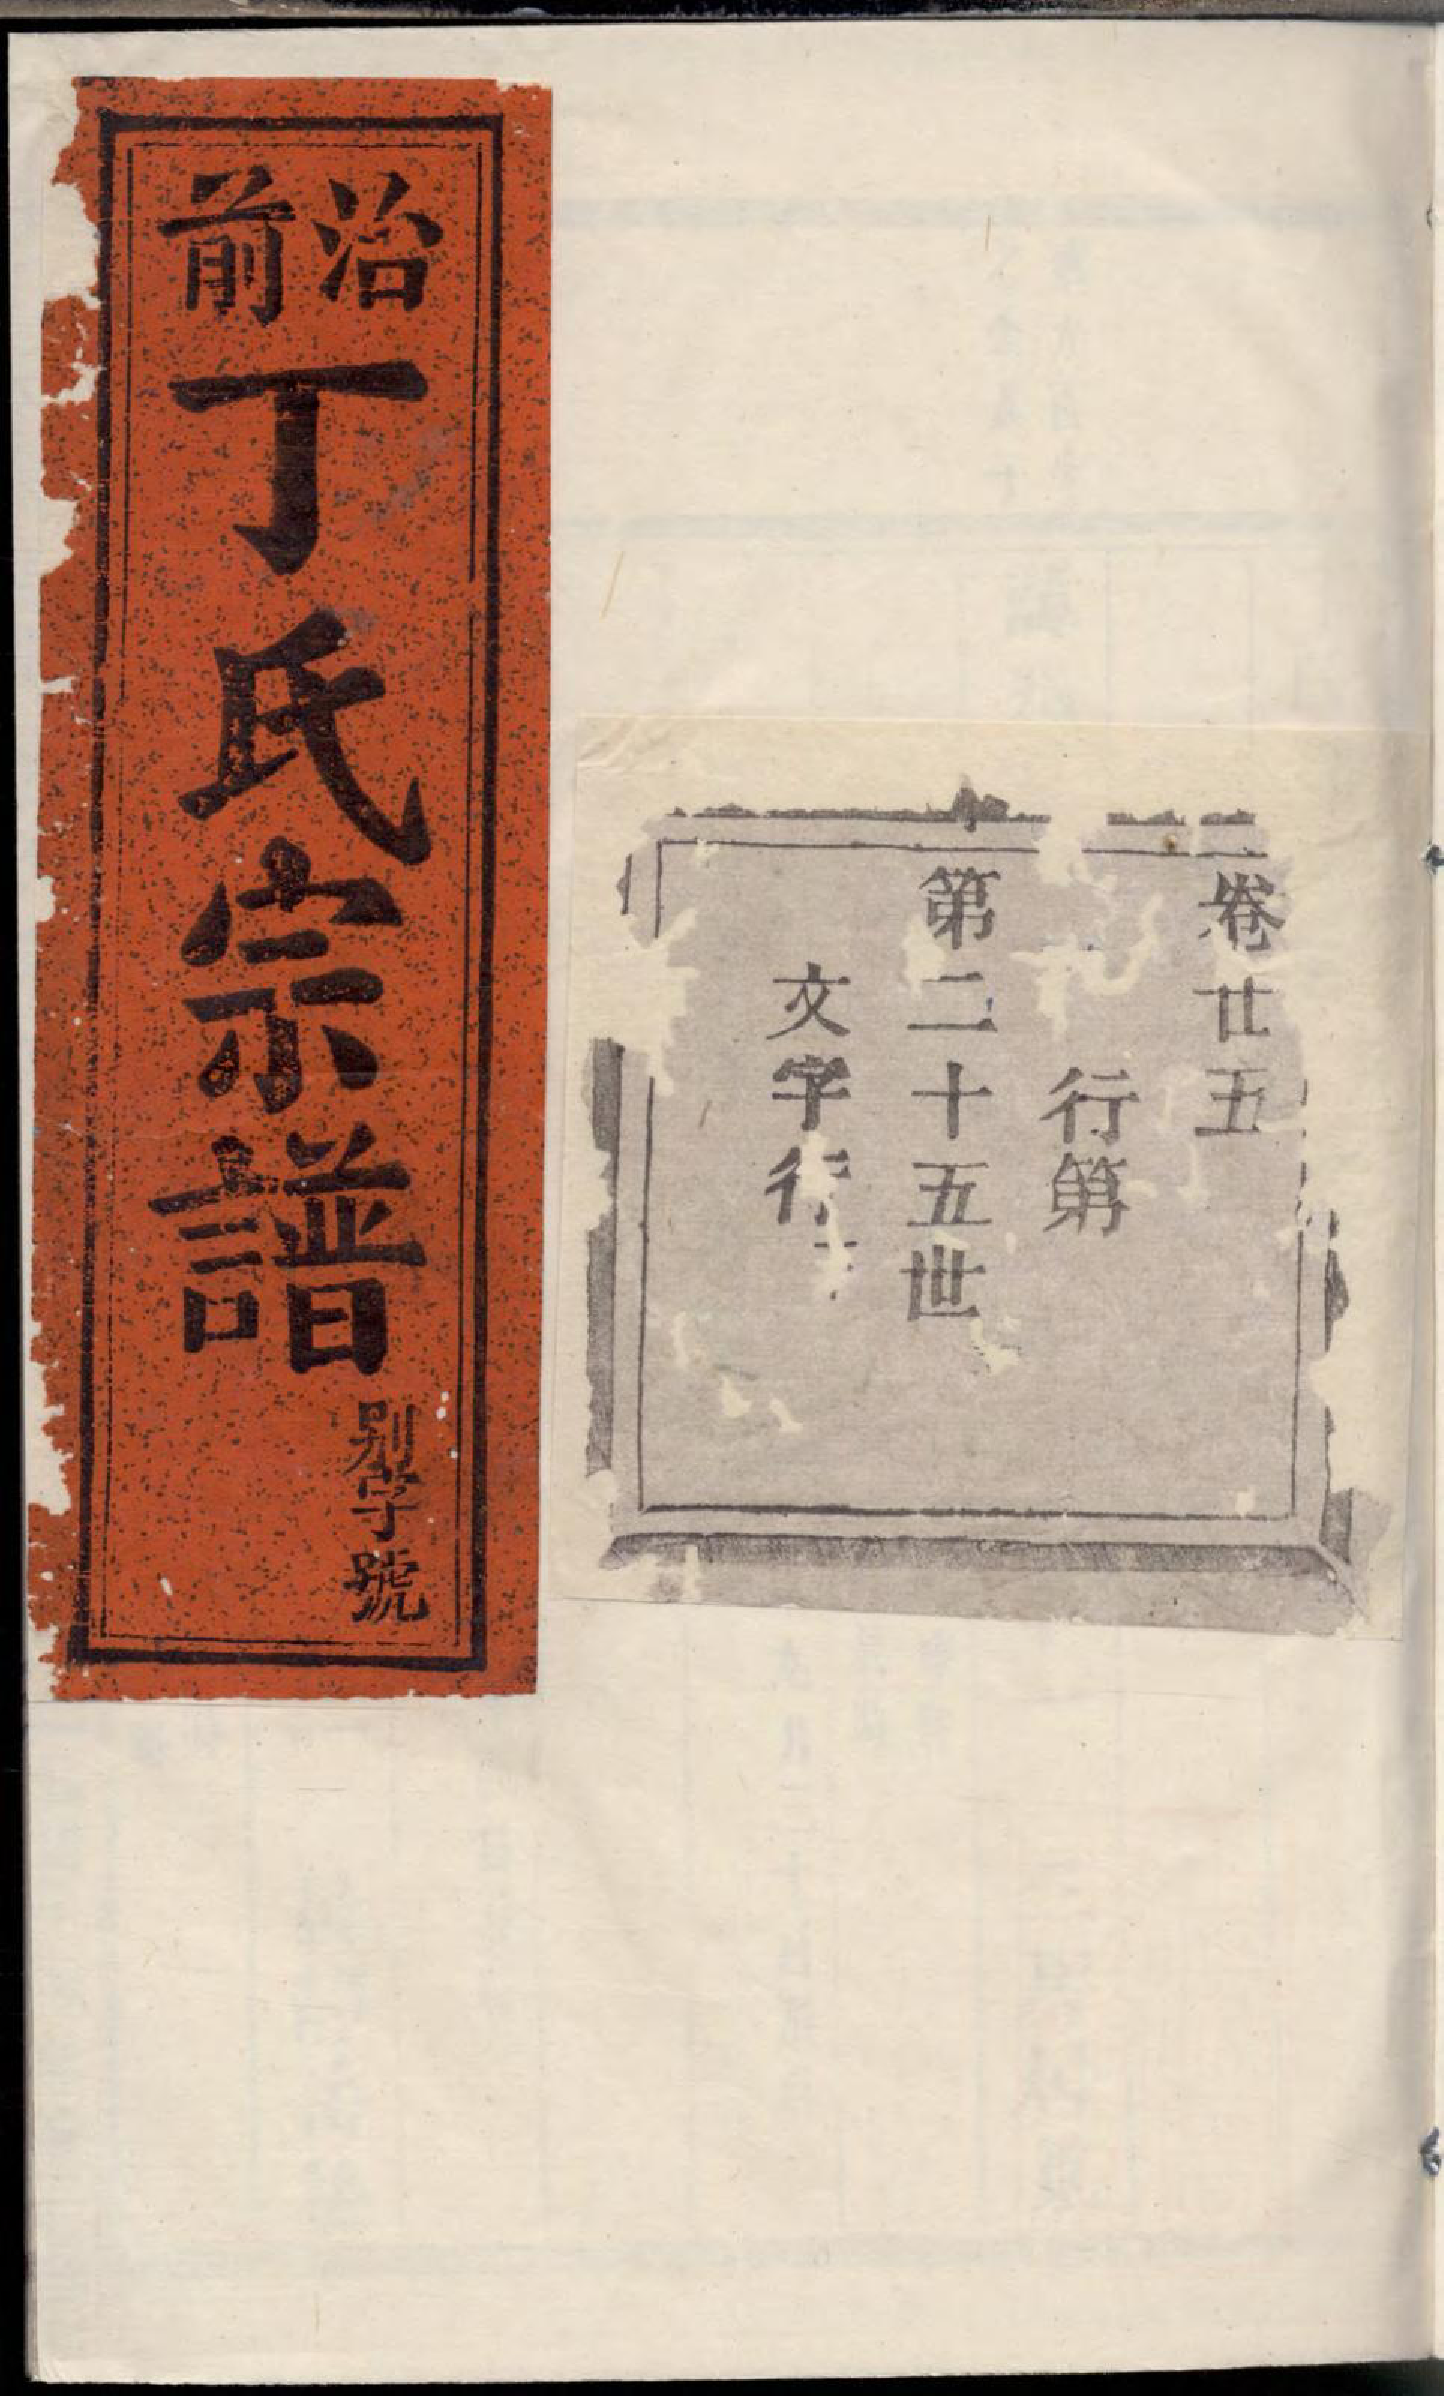 卷廿五
行第
第二十五世
文字行
治前
丁氏宗譜
別字號